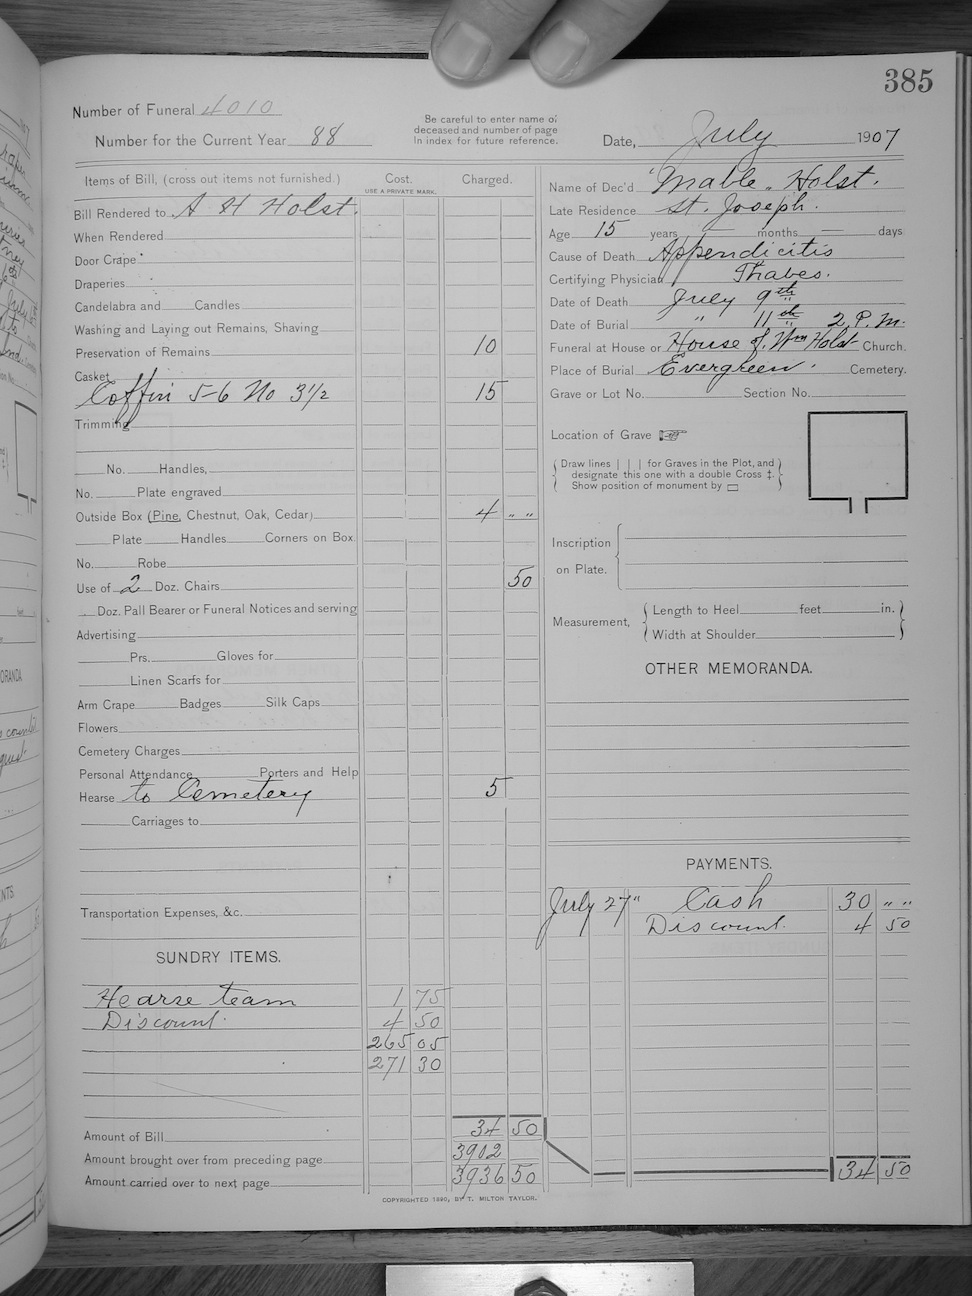 385
Number of Funeral 4010
Number for the Current Year 88
Be careful to enter name of
deceased and number of page
In index for future reference.
Date, July 1907
Items of Bill, (cross out items not furnished.)
Cost.
USE A PRIVATE MARK.
Charged.
Bill Rendered to A H Holst.
When Rendered
Door Crape
Draperies
Candelabra and Candles
Washing and Laying out Remains, Shaving
Preservation of Remains 10
Casket
Coffin 5-6 No 3½ 15
Trimming
No. Handles,
No. Plate engraved
Outside Box (Pine, Chestnut, Oak, Cedar) 4 " "
Plate Handles Corners on Box
No. Robe
Use of 2 Doz. Chairs 50
Doz. Pall Bearer or Funeral Notices and serving
Advertising
Prs. Gloves for
Linen Scarfs for
Arm Crape Badges Silk Caps
Flowers
Cemetery Charges
Personal Attendance Porters and Help
Hearse to Cemetery 5
Carriages to
Transportation Expenses, &c.
SUNDRY ITEMS.
Hearse team 1 75
Discount. 4 50
265 05
271 30
Amount of Bill 34 50
Amount brought over from preceding page 3902
Amount carried over to next page 3936 50
Name of Dec'd "Mable" Holst.
Late Residence St. Joseph.
Age 15 years — months — days
Cause of Death Appendicitis
Certifying Physician Thabes.
Date of Death July 9th
Date of Burial " 11th 2 P.M.
Funeral at House or House of Wm Holst Church.
Place of Burial Evergreen. Cemetery.
Grave or Lot No. Section No.
Location of Grave
Draw lines | | | for Graves in the Plot, and
designate this one with a double Cross ‡.
Show position of monument by ▭
Inscription
on Plate.
Measurement,
Length to Heel feet in.
Width at Shoulder
OTHER MEMORANDA.
PAYMENTS.
July 27" Cash 30 " "
Discount. 4 50
34 50
COPYRIGHTED 1890, BY T. MILTON TAYLOR.